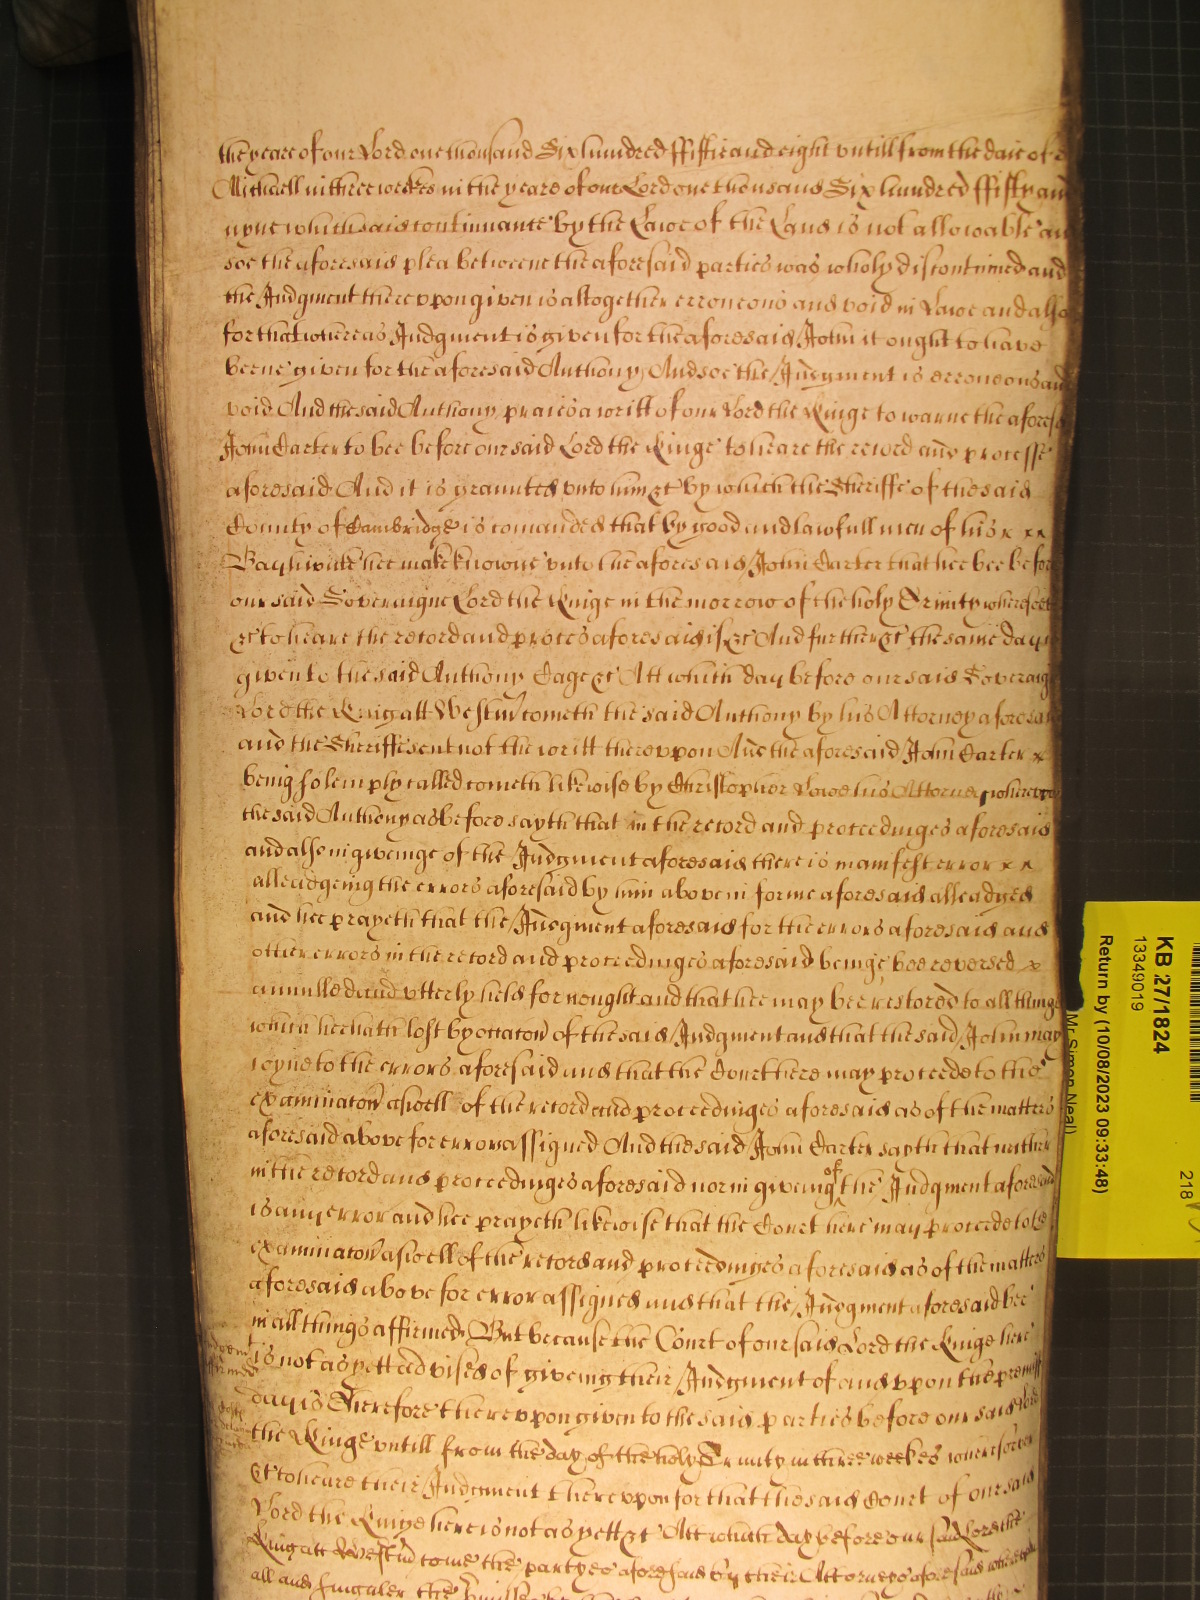 the yeare of our Lord one thousand Six hundred ffiftie and eight vntill from the daie of
Michaell in three weekes in the yeare of our Lord one thousand Six hundred ffifty and
nyne which said continuance by the Lawe of the Land is not allowable and
soe the aforesaid plea betweene the aforesaid parties was wholy discontinued and
the Judgment therevppon given is altogether erroneous and void in Lawe and also
for that whereas Judgment is given for the aforesaid John it ought to have
beene given for the aforesaid Anthony And soe the Judgment is erroneous and
void And the said Anthony praies a writt of our Lord the Kinge to warne the aforesd
John Carter to bee before our said Lord the Kinge to heare the record and processe
aforesaid And it is graunted vnto him &c by which the Sheriffe of the said
County of Cambridge is comanded that by good and lawfull men of his x xx
Bayliwicke hee make knowne vnto the aforesaid John Carter that hee bee before
our said Soveraigne Lord the Kinge in the morrow of the holy Trinity wheresoe
&c to heare the record and proces aforesaid if &c And further &c the same day is
given to the said Anthony Cage &c Att which day before our said Soveraig
Lord the King att Westm̃ cometh the said Anthony by his Attorney aforesaid
and the Sheriffe sent not the writt therevpon And the aforesaid John Carter x
being solemply called cometh likewise by Christopher Lowe his Attorney wherevpon
the said Anthony as before sayth that in the record and proceedinges aforesaid
and also in giveinge of the Judgment aforesaid there is manifest error x x
alleadgeing the errors aforesaid by him above in forme aforesaid alleadged
and hee prayeth that the Judgment aforesaid for the errors aforesaid and
other errors in the record and proceedinges aforesaid beinge bee reversed x
annulled and vtterly held for nought and that hee may bee restored to all things
which hee hath lost by occation of the said Judgment and that the said John may
ioyne to the errors aforesaid and that the Court here may proceede to the
examinaton aswell of the record and proceedinges aforesaid as of the matters
aforesaid above for errors assigned And the said John Carter sayth that neither
in the record and proceedinges aforesaid nor in giveing of the Judgment aforesaid
is any error and hee prayeth likewise that the Court here may proceede to the
examinaton aswell of the record and proceedinges aforesaid as of the matters
aforesaid above for error assigned and that the Judgment aforesaid bee
in all things affirmed But because the Court of our said Lord the Kinge here
is not as yett advised of giveing their Judgment of and vpon the premiss
day is Therefore therevpon given to the said parties before our said Lord
the Kinge vntill from the day of the holy Trinity in three weekes wheresoever
&c to heare their Judgment therevpon for that the said Court of our said
Lord the Kinge here is not as yett &c Att which day before our said Lord the
King att Westm̃ come the partyes aforesaid by their Attorneys aforesaid wherevpon
all and singuler the
KB 27/1824
13349019
Return by (10/08/2023 09:33:48)
Mr Simon Neal)
218